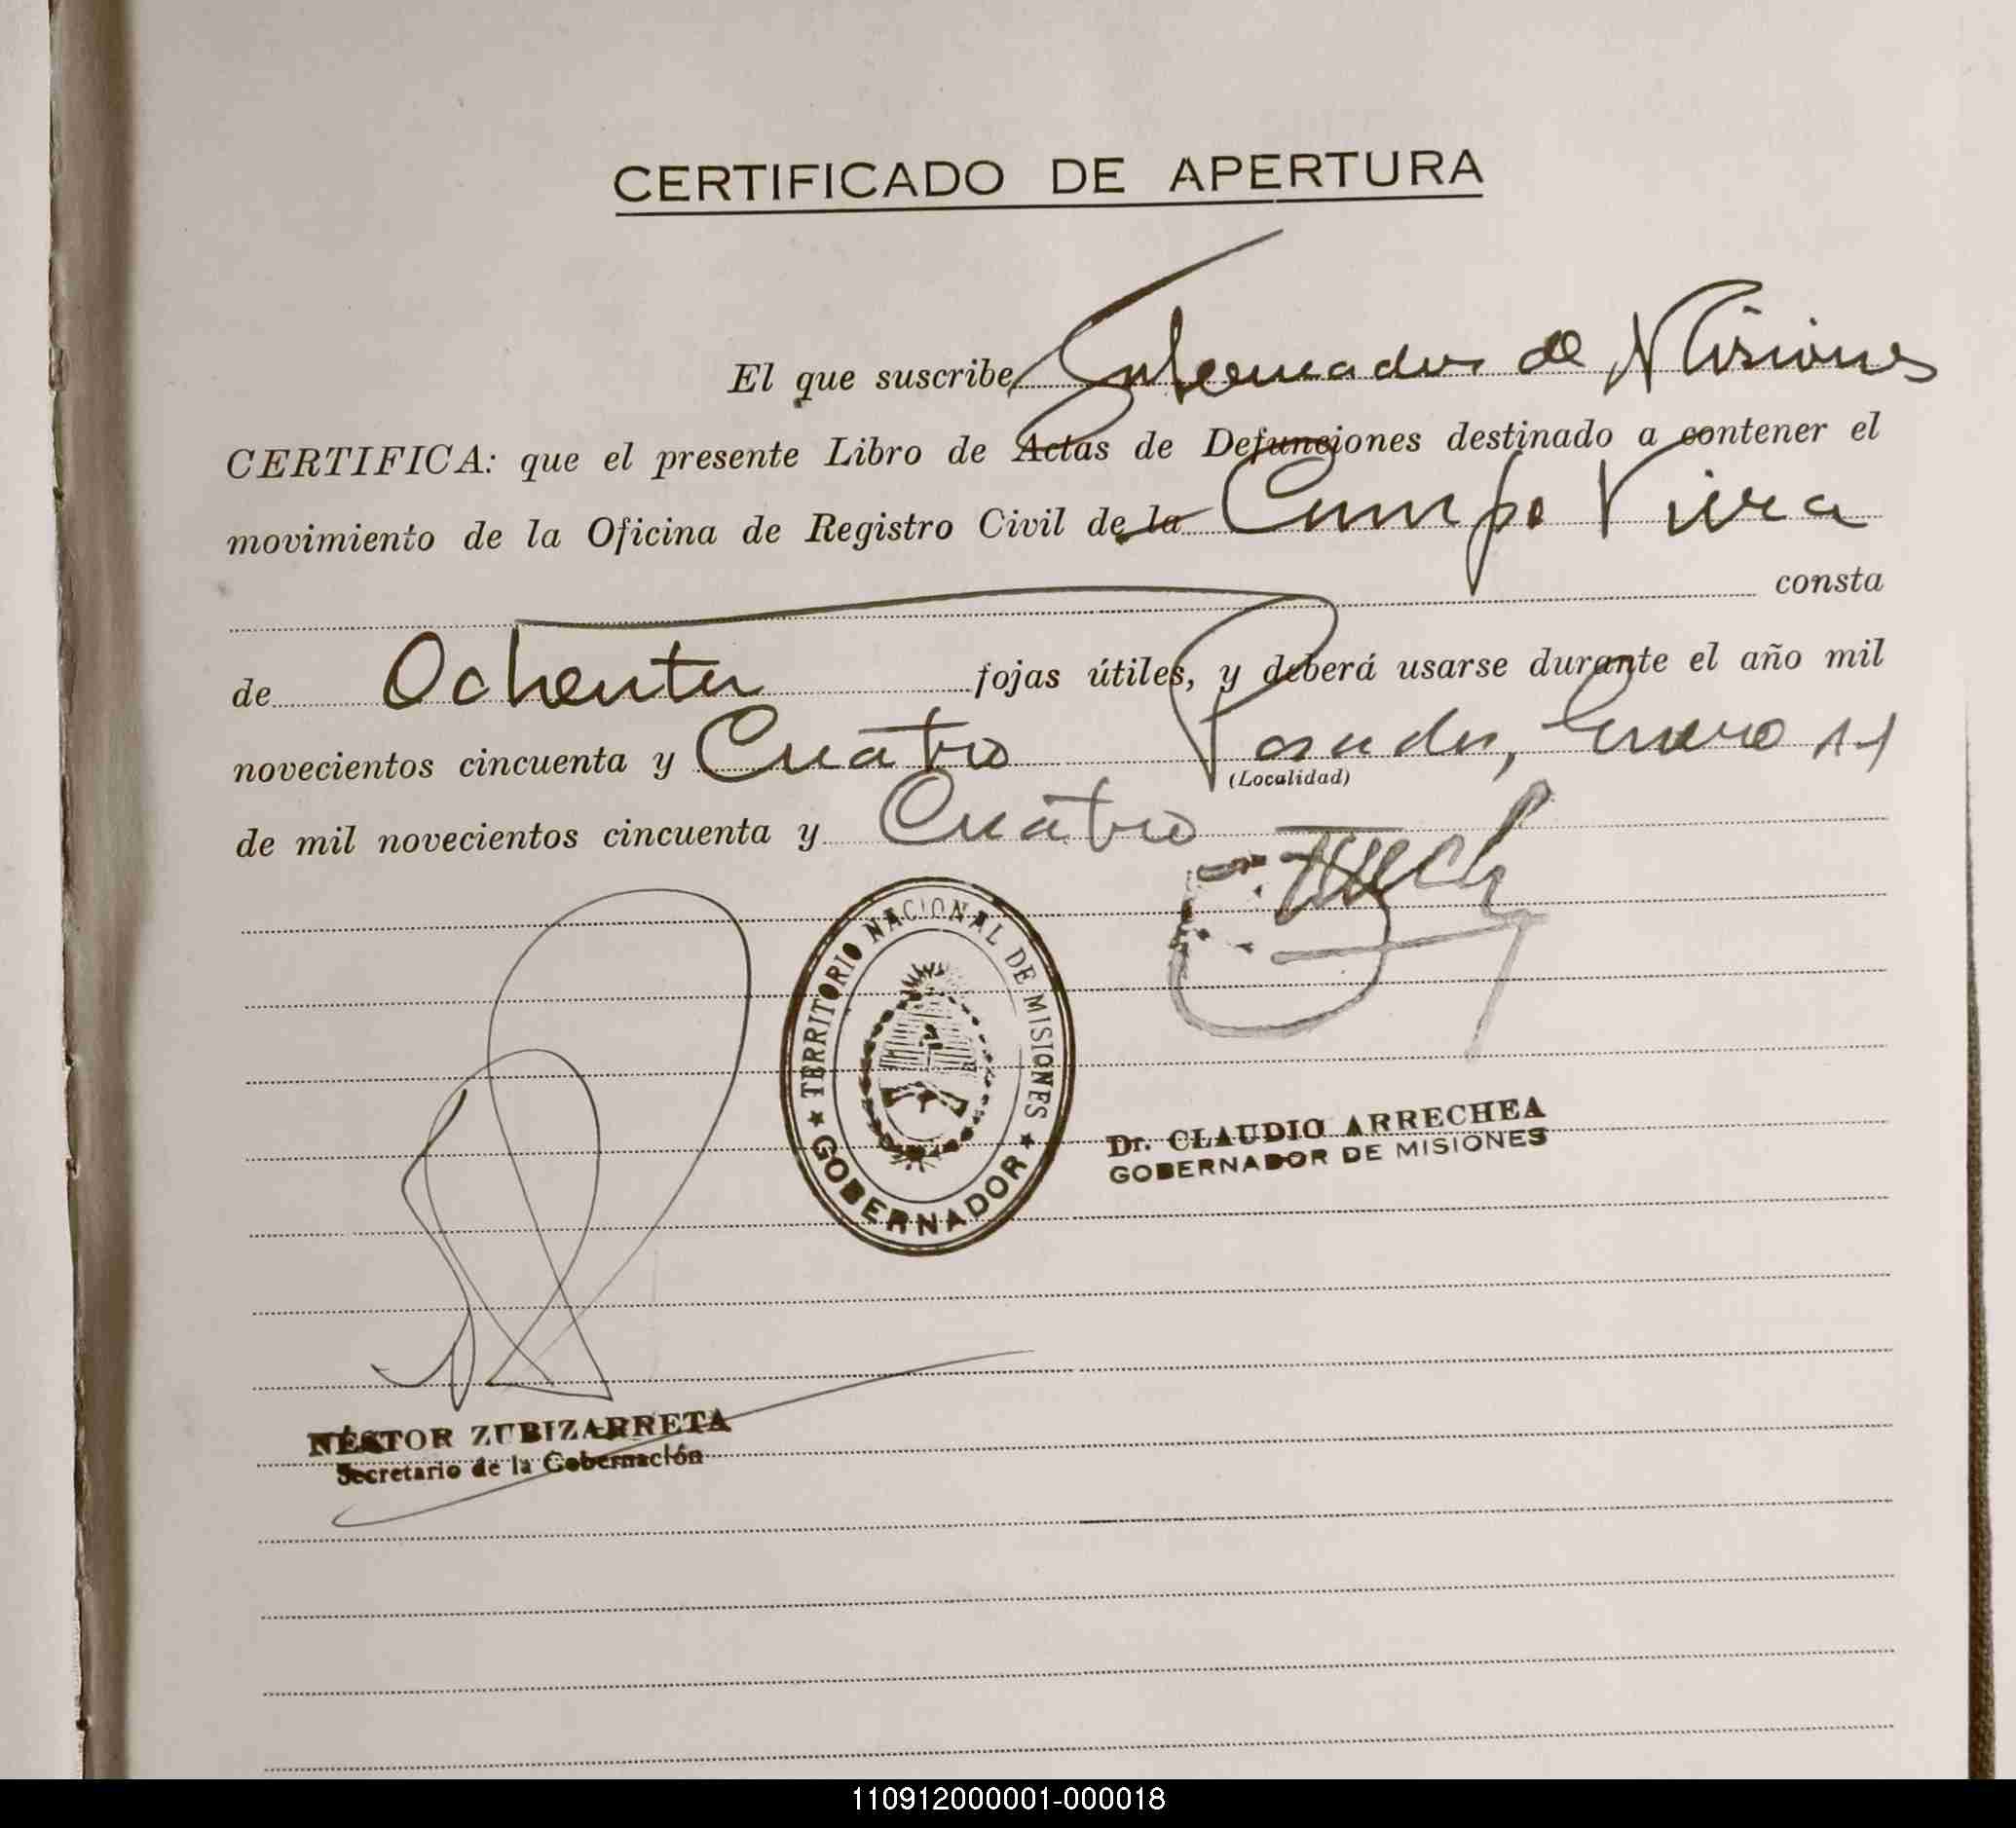 CERTIFICADO DE APERTURA
El que suscribe, Gobernador de Misiones
CERTIFICA: que el presente Libro de Actas de Defunciones destinado a contener el
movimiento de la Oficina de Registro Civil de la Campo Viera
consta
de Ochenta fojas útiles, y deberá usarse durante el año mil
novecientos cincuenta y Cuatro Posadas, Enero 11
(Localidad)
de mil novecientos cincuenta y Cuatro
TERRITORIO NACIONAL DE MISIONES
GOBERNADOR
Dr. CLAUDIO ARRECHEA
GOBERNADOR DE MISIONES
NÉSTOR ZUBIZARRETA
Secretario de la Gobernación
110912000001-000018